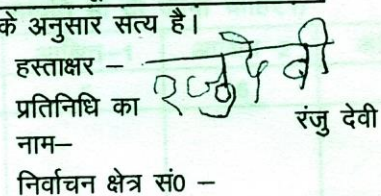 के अनुसार सत्य है।
हस्ताक्षर – रजुदेवी
प्रतिनिधि का रंजु देवी
नाम–
निर्वाचन क्षेत्र सं0 –